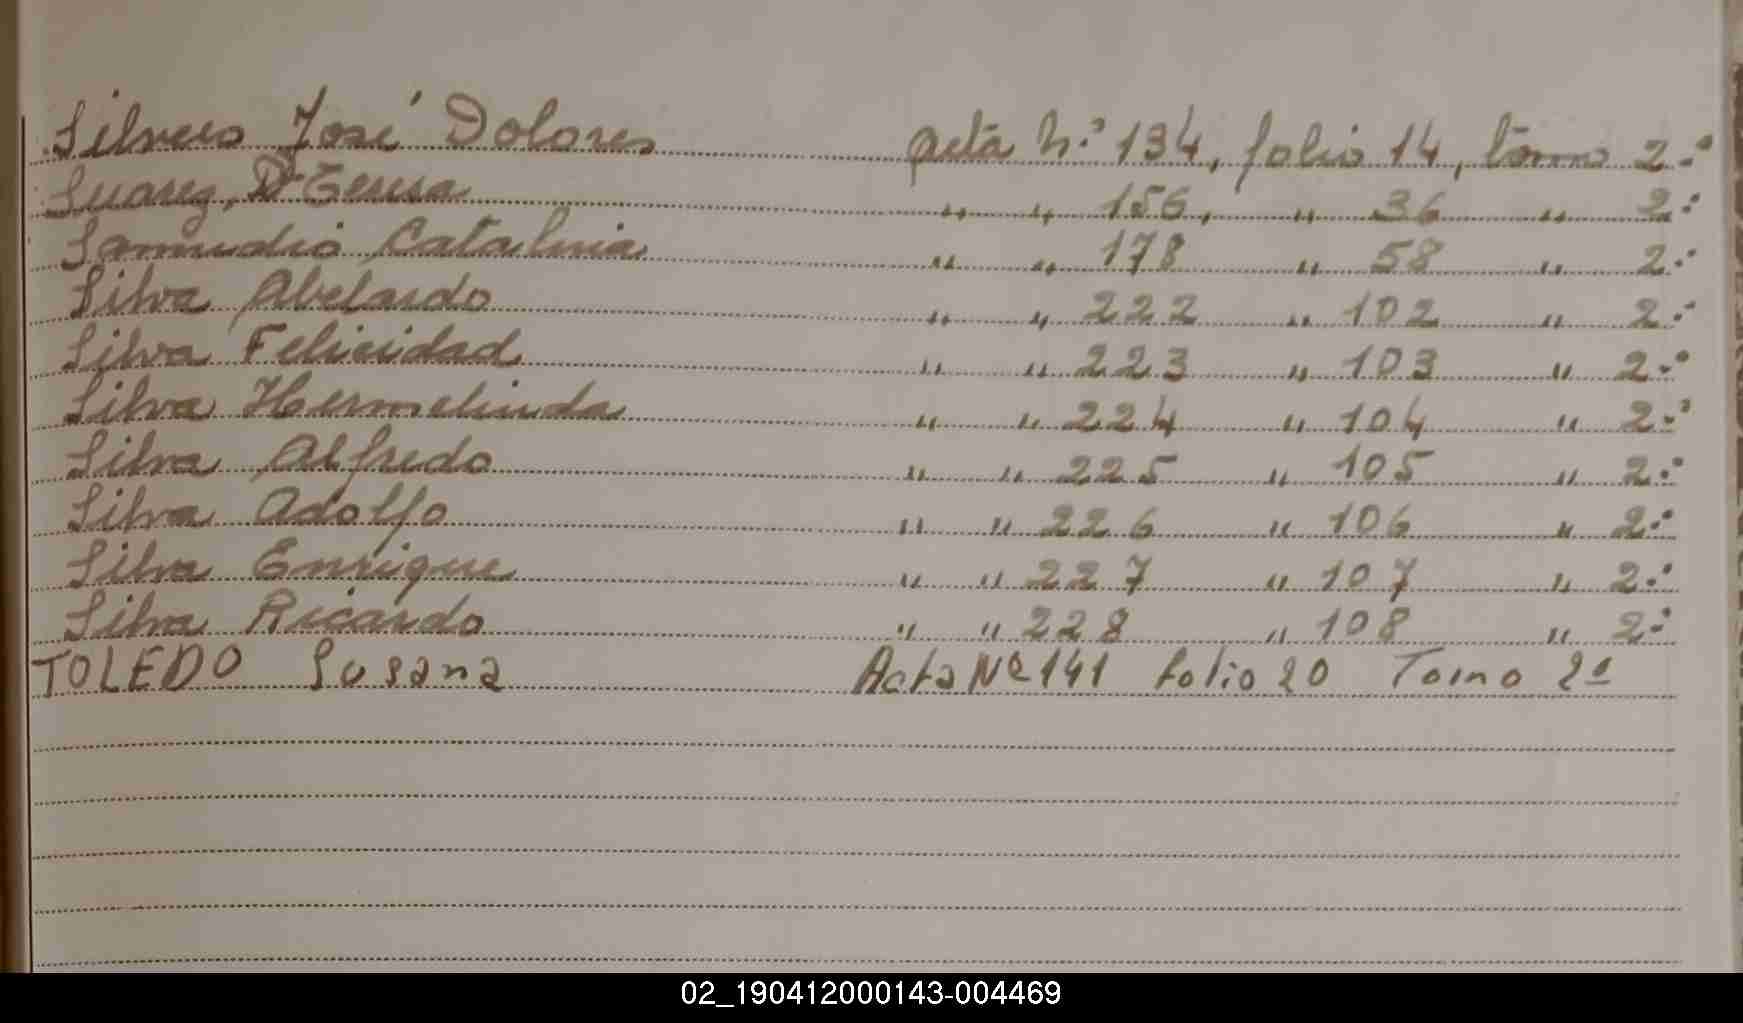 Silvero José Dolores acta N.º 134, folio 14, tomo 2.º
Suarez, D. Teresa " " 156, " 36 " 2.º
Samudio Catalina " " 178 " 58 " 2.º
Silva Abelardo " " 222 " 102 " 2.º
Silva Felicidad " " 223 " 103 " 2.º
Silva Hermelinda " " 224 " 104 " 2.º
Silva Alfredo " " 225 " 105 " 2.º
Silva Adolfo " " 226 " 106 " 2.º
Silva Enrique " " 227 " 107 " 2.º
Silva Ricardo " " 228 " 108 " 2.º
TOLEDO Susana Acta Nº 141 folio 20 Tomo 2º
02_190412000143-004469